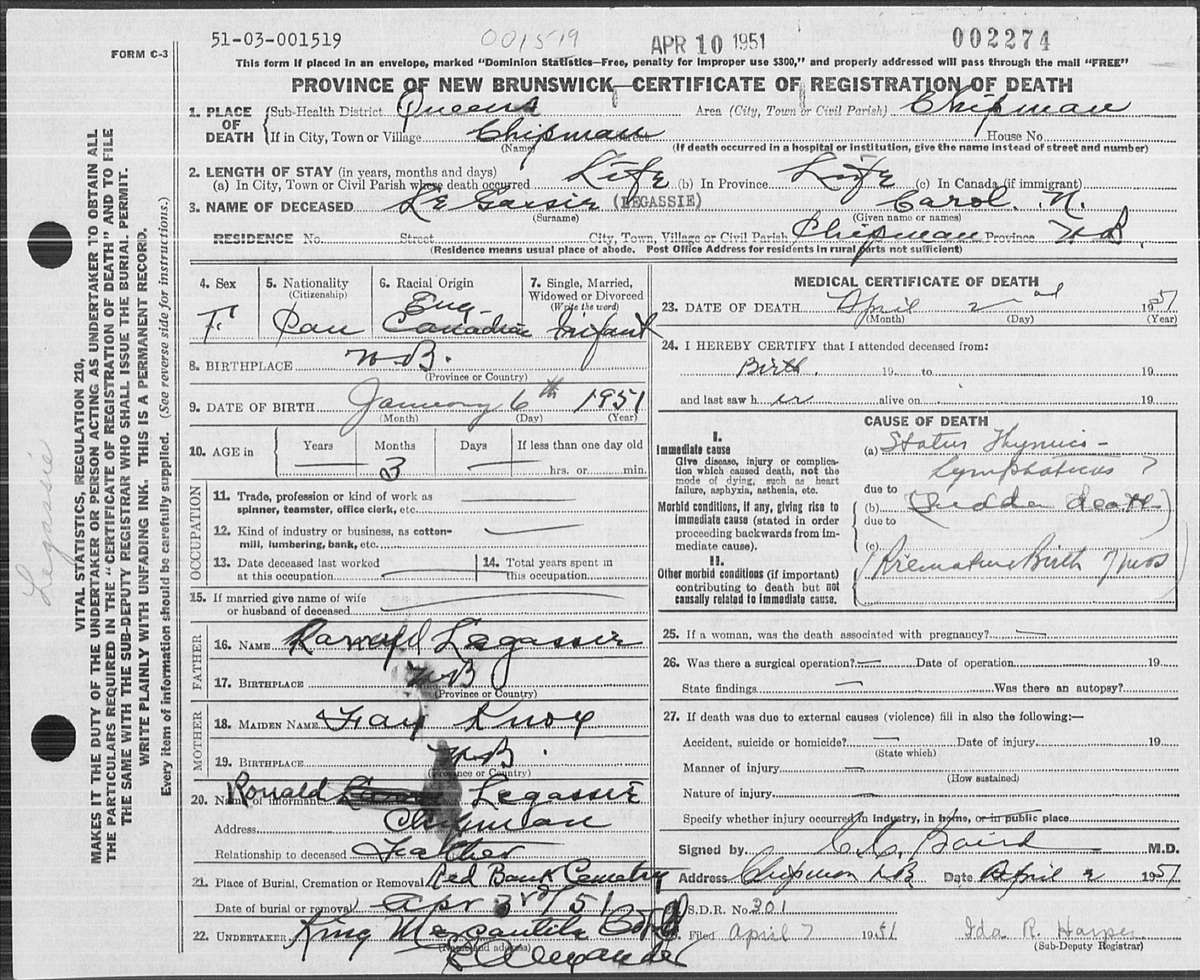 51-03-001519 001519 APR 10 1951 002274
FORM C-3
This form if placed in an envelope, marked "Dominion Statistics—Free, penalty for improper use $300," and properly addressed will pass through the mail "FREE"
PROVINCE OF NEW BRUNSWICK—CERTIFICATE OF REGISTRATION OF DEATH
1. PLACE OF DEATH
Sub-Health District Queens Area (City, Town or Civil Parish) Chipman
If in City, Town or Village Chipman Street House No.
(Name) (If death occurred in a hospital or institution, give the name instead of street and number)
2. LENGTH OF STAY (in years, months and days)
(a) In City, Town or Civil Parish where death occurred Life (b) In Province Life (c) In Canada (if immigrant)
3. NAME OF DECEASED Le Gassie (LEGASSIE) Carol. N.
(Surname) (Given name or names)
RESIDENCE No. Street City, Town, Village or Civil Parish Chipman Province N.B.
(Residence means usual place of abode. Post Office Address for residents in rural parts not sufficient)
4. Sex
F
5. Nationality
(Citizenship)
Can
6. Racial Origin
Eng-
Canadian
7. Single, Married,
Widowed or Divorced
(Write the word)
Infant
8. BIRTHPLACE N.B.
(Province or Country)
9. DATE OF BIRTH January 6th 1951
(Month) (Day) (Year)
10. AGE in Years Months Days If less than one day old
3 hrs. or min.
OCCUPATION
11. Trade, profession or kind of work as
spinner, teamster, office clerk, etc.
12. Kind of industry or business, as cotton-
mill, lumbering, bank, etc.
13. Date deceased last worked
at this occupation
14. Total years spent in
this occupation
15. If married give name of wife
or husband of deceased
FATHER
16. NAME Legassie
17. BIRTHPLACE N.B
(Province or Country)
MOTHER
18. MAIDEN NAME Fay Knox
19. BIRTHPLACE N.B.
(Province or Country)
20. Name of informant Ronald Legassie
Address Chipman
Relationship to deceased Father
21. Place of Burial, Cremation or Removal Red Bank Cemetry
Date of burial or removal Apr 3rd/51
22. UNDERTAKER King Mercantile Co Ltd
(Name and address)
MEDICAL CERTIFICATE OF DEATH
23. DATE OF DEATH April 2nd 1951
(Month) (Day) (Year)
24. I HEREBY CERTIFY that I attended deceased from:
Birth. 19 to 19
and last saw her alive on 19
CAUSE OF DEATH
I.
Immediate cause
Give disease, injury or complica-
tion which caused death, not the
mode of dying, such as heart
failure, asphyxia, asthenia, etc.
(a) Status Thymico-
Lymphaticus ?
due to
Morbid conditions, if any, giving rise to
immediate cause (stated in order
proceeding backwards from im-
mediate cause).
(b) (Sudden death)
due to
(c)
II.
Other morbid conditions (if important)
contributing to death but not
causally related to immediate cause.
(Premature Birth 7 mos)
25. If a woman, was the death associated with pregnancy?
26. Was there a surgical operation? Date of operation 19
State findings Was there an autopsy?
27. If death was due to external causes (violence) fill in also the following:—
Accident, suicide or homicide? Date of injury 19
(State which)
Manner of injury
(How sustained)
Nature of injury
Specify whether injury occurred in industry, in home, or in public place
Signed by C.C. Baird M.D.
Address Chipman N.B Date April 2 1951
S.D.R. No. 301
Filed April 7 1951 Ida R. Harper
(Sub-Deputy Registrar)
VITAL STATISTICS, REGULATION 210,
MAKES IT THE DUTY OF THE UNDERTAKER OR PERSON ACTING AS UNDERTAKER TO OBTAIN ALL
THE PARTICULARS REQUIRED IN THE "CERTIFICATE OF REGISTRATION OF DEATH" AND TO FILE
THE SAME WITH THE SUB-DEPUTY REGISTRAR WHO SHALL ISSUE THE BURIAL PERMIT.
WRITE PLAINLY WITH UNFADING INK. THIS IS A PERMANENT RECORD.
Every item of information should be carefully supplied. (See reverse side for instructions.)
Legassie